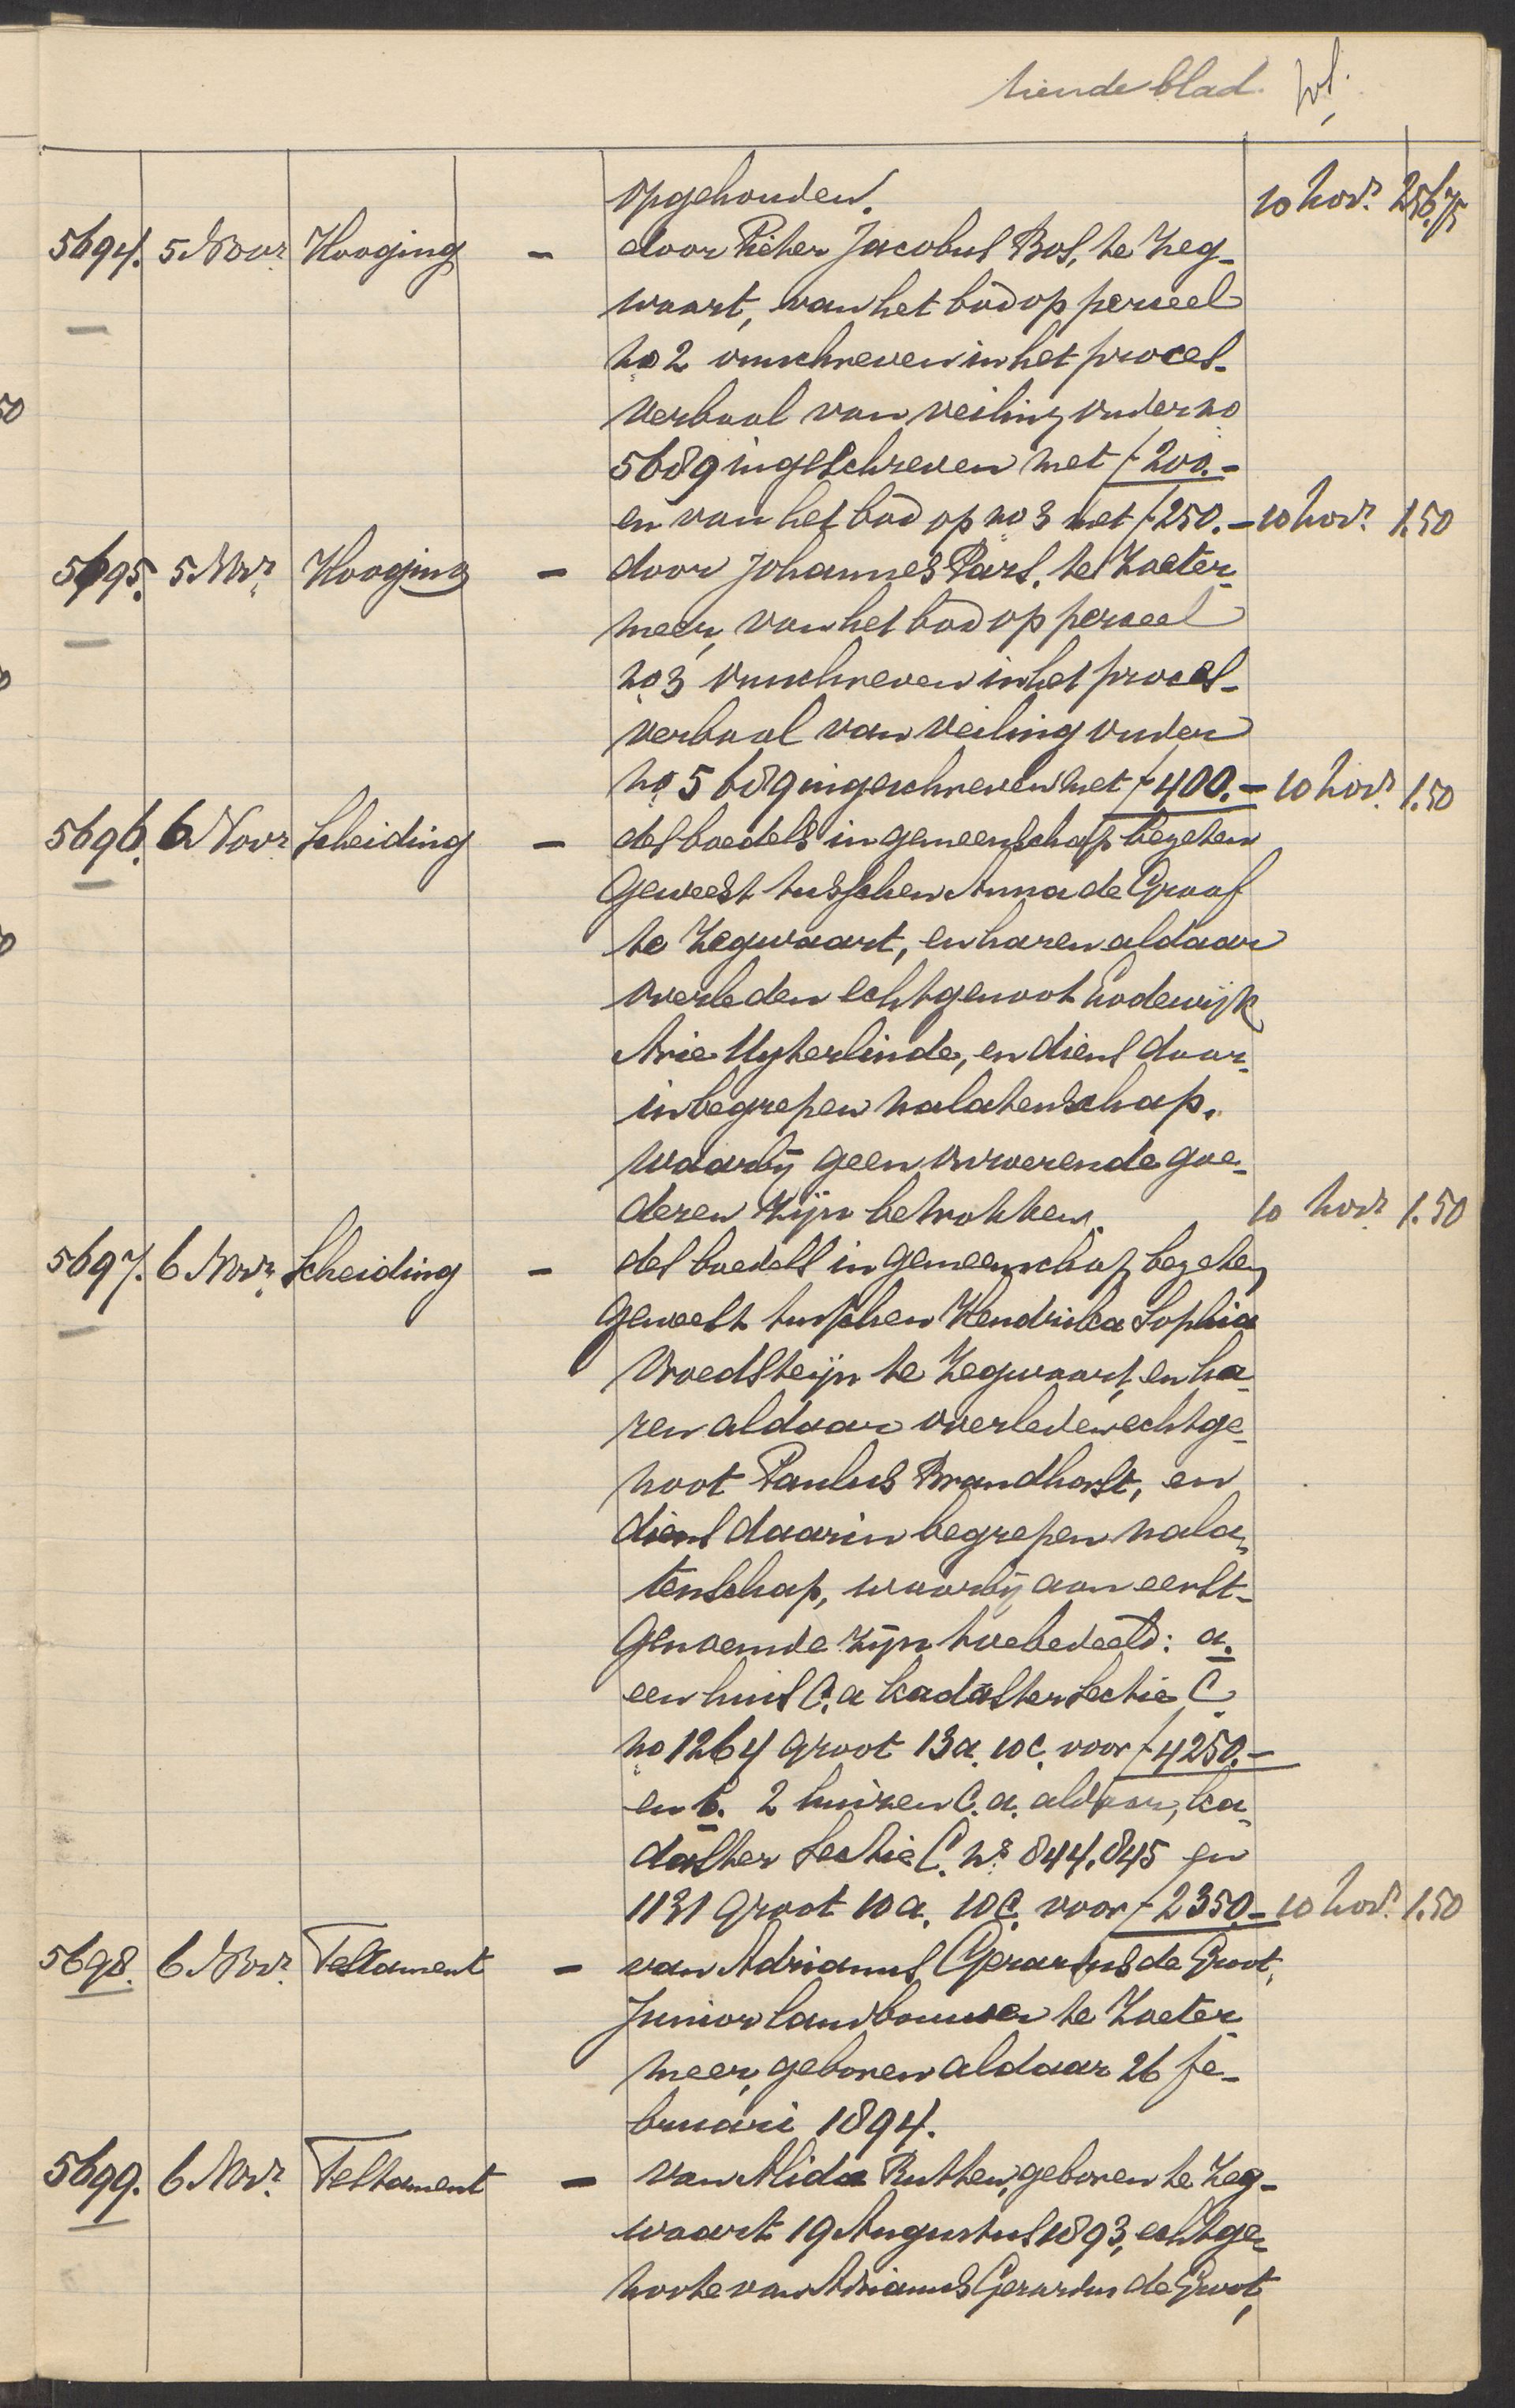 tiende blad.
opgehouden. 10 Novr. 256.75
5694. 5 Novr. Hooging - door Pieter Jacobus Bos, te Zeg-
waart, van het bod op perceel
no 2 omschreven in het proces-
verbaal van veiling onder no
5689 ingeschreven met f 200.-
en van het bod op no 3 met f 250.- 10 Novr. 1.50
5695. 5 Novr. Hooging - door Johannes Pars, te Zoeter-
meer, van het bod op perceel
no 3 omschreven in het proces-
verbaal van veiling onder
no 5689 ingeschreven met f 400.- 10 Novr. 1.50
5696. 6 Novr. Scheiding - des boedels in gemeenschap bezeten
geweest tusschen Anna de Graaf
te Zegwaart, en haren aldaar
overleden echtgenoot Lodewijk
Arie Uyterlinde, en diens daar-
inbegrepen nalatenschap,
waarbij geen onroerende goe-
deren zijn betrokken. 10 Novr. 1.50
5697. 6 Novr. Scheiding - des boedels in gemeenschap bezeten
geweest tusschen Hendrika Sophia
Vroedsteijn te Zegwaart, en ha-
ren aldaar overleden echtge-
noot Paulus Brandhorst, en
diens daarin begrepen nala-
tenschap, waarbij aan eerst-
genoemde zijn toebedeeld: a.
een huis c.a kadaster sectie C.
no 1264 groot 13 a. 10 c. voor f 4250.-
en b. 2 huizen c.a. aldaar, ka-
daster sectie C. ns 844, 845 en
1131 groot 10 a. 10 c. voor f 2350.- 10 Novr. 1.50
5698. 6 Novr. Testament - van Adrianus Gerardus de Groot,
Junior landbouwer te Zoeter-
meer, geboren aldaar 26 fe-
bruari 1894.
5699. 6 Novr. Testament - van Alida Rutten, geboren te Zeg-
waart 19 Augustus 1893, echtge-
noote van Adrianus Gerardus de Groot,